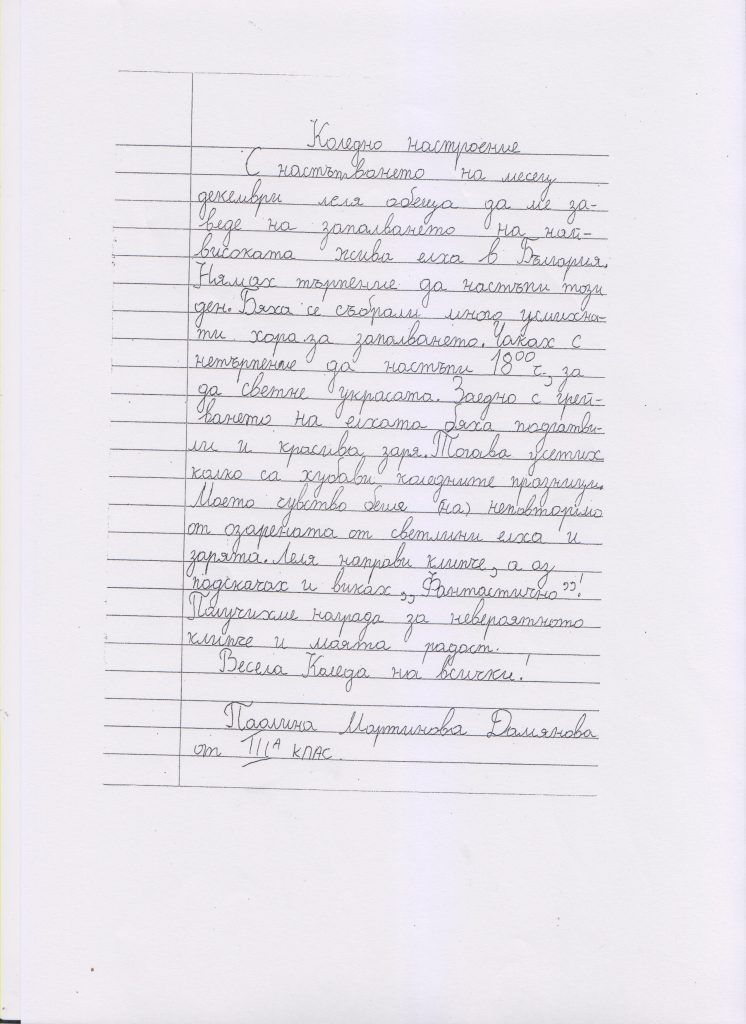 Коледно настроение
С настъпването на месец
декември леля обеща да ме за-
веде на запалването на най-
високата жива елха в България.
Нямах търпение да настъпи този
ден. Бяха се събрали много усмихна-
ти хора за запалването. Чаках с
нетърпение да настъпи 18⁰⁰ ч., за
да светне украсата. Заедно с грей-
ването на елхата бяха подготви-
ли и красива заря. Тогава усетих
колко са хубави коледните празници.
Моето чувство беше (на) неповторимо
от озарената от светлини елха и
зарята. Леля направи клипче, а аз
подскачах и виках „Фантастично”!
Получихме награда за невероятното
клипче и моята радост.
Весела Коледа на всички!
Паолина Мартинова Дамянова
от IIIᴬ клас.